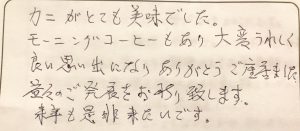 カニがとても美味でした。
モーニングコーヒーもあり大変うれしく
良い思い出になりありがとうご座居ました
益々のご発展をお祈り致します。
来年も是非来たいです。